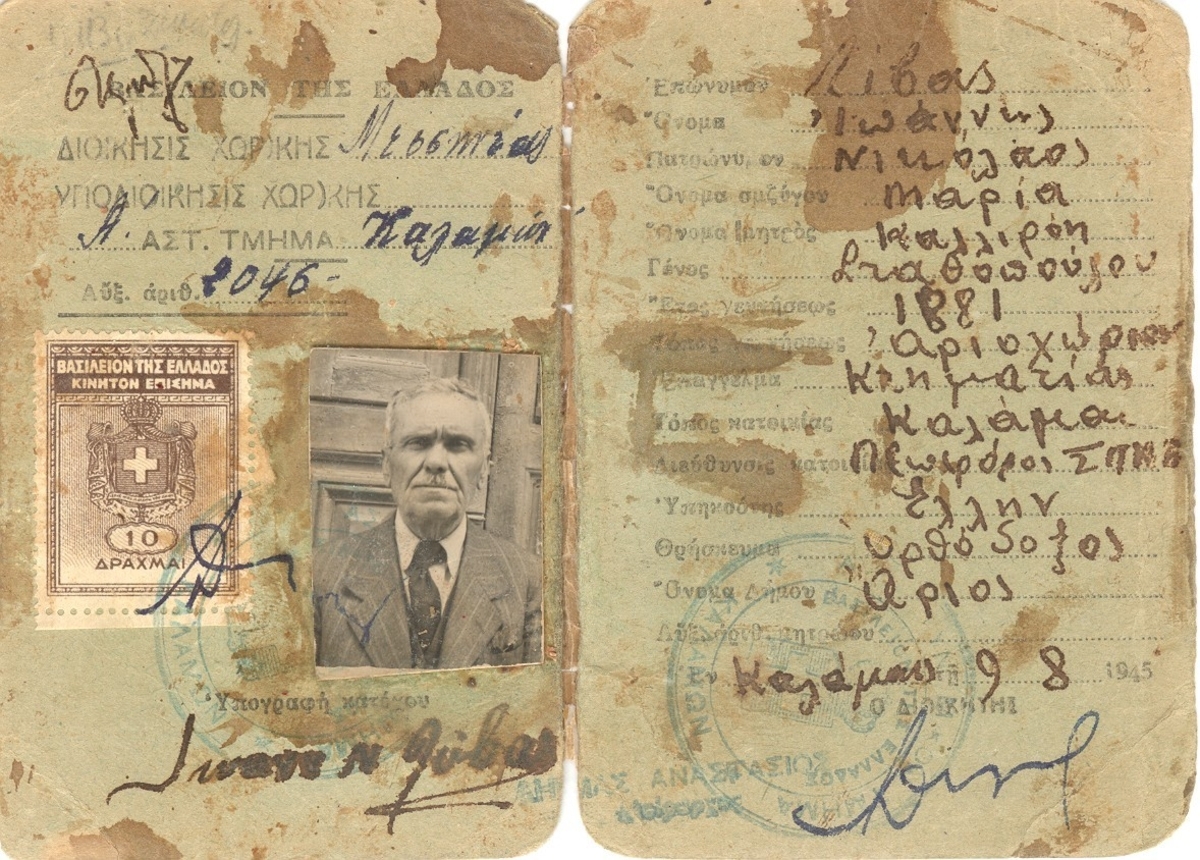 ΒΑΣΙΛΕΙΟΝ ΤΗΣ ΕΛΛΑΔΟΣ
ΔΙΟΙΚΗΣΙΣ ΧΩΡ)ΚΗΣ Μεσσηνίας
ΥΠΟΔΙΟΙΚΗΣΙΣ ΧΩΡ)ΚΗΣ
Α΄. ΑΣΤ. ΤΜΗΜΑ Καλαμών
Αὔξ. ἀριθ. 2046-
ΒΑΣΙΛΕΙΟΝ ΤΗΣ ΕΛΛΑΔΟΣ
ΚΙΝΗΤΟΝ ΕΠΙΣΗΜΑ
10
ΔΡΑΧΜΑΙ
Ὑπογραφὴ κατόχου
Ἐπώνυμον Λίβας
Ὄνομα Ἰωάννης
Πατρώνυμον Νικόλαος
Ὄνομα συζύγου Μαρία
Ὄνομα μητρὸς Καλλιρόη
Γένος Σταθοπούλου
Ἔτος γεννήσεως 1881
Τόπος γεννήσεως Ἀριοχώριον
Ἐπάγγελμα Κτηματίας
Τόπος κατοικίας Καλάμαι
Διεύθυνσις κατοικ
Ὑπηκοότης Ἕλλην
Θρήσκευμα Ὀρθόδοξος
Ὄνομα Δήμου Ἄριος
Αὔξ. ἀριθ. μητρώου
Ἐν Καλάμαις τῇ 9 8 1945
Ο ΔΙΟΙΚΗΤΗΣ
ΑΝΑΣΤΑΣΙΟΣ